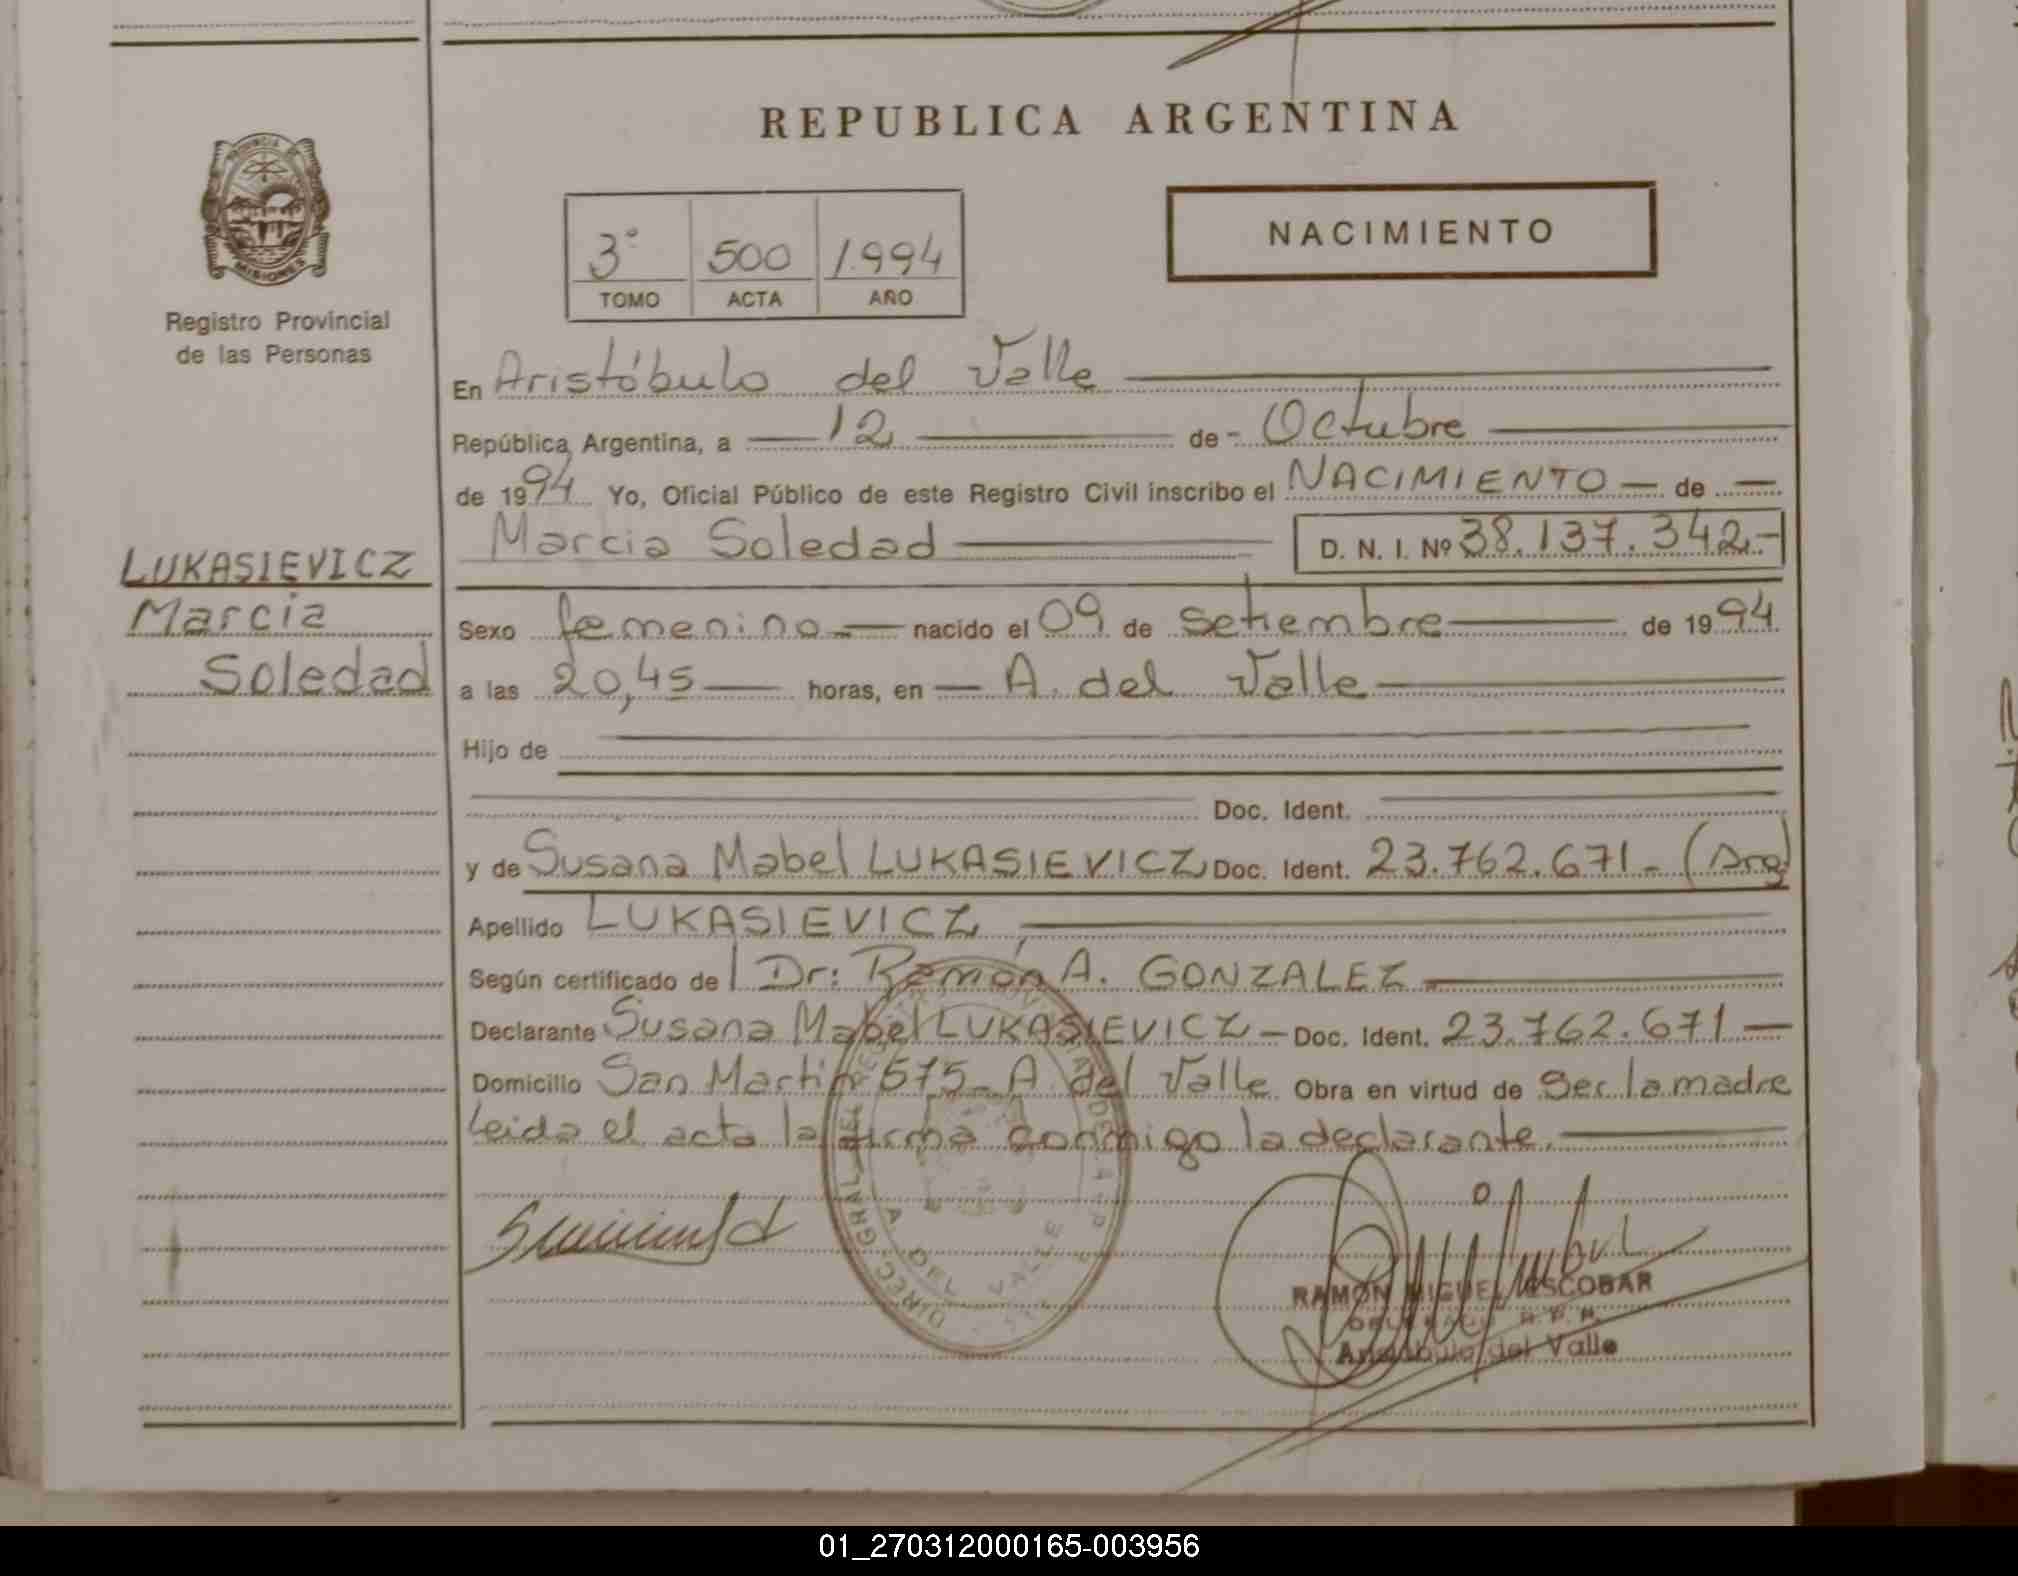 REPUBLICA ARGENTINA
PROVINCIA DE
MISIONES
Registro Provincial
de las Personas
3° 500 1.994
TOMO ACTA AÑO
NACIMIENTO
En Aristóbulo del Valle
República Argentina, a 12 de Octubre
de 1994 Yo, Oficial Público de este Registro Civil inscribo el NACIMIENTO de
Marcia Soledad D. N. I. Nº 38.137.342.-
LUKASIEVICZ
Marcia
Soledad
Sexo femenino.- nacido el 09 de setiembre de 1994
a las 20,45 horas, en A. del Valle
Hijo de
Doc. Ident.
y de Susana Mabel LUKASIEVICZ Doc. Ident. 23.762.671.- (Arg)
Apellido LUKASIEVICZ
Según certificado de l Dr: Ramón A. GONZALEZ
Declarante Susana Mabel LUKASIEVICZ - Doc. Ident. 23.762.671
Domicilio San Martin 575- A. del Valle Obra en virtud de ser la madre
Leida el acta la firma conmigo la declarante.
A. DEL VALLE
RAMÓN MIGUEL ESCOBAR
DELEGADO R.P.P.
Aristóbulo del Valle
01_270312000165-003956